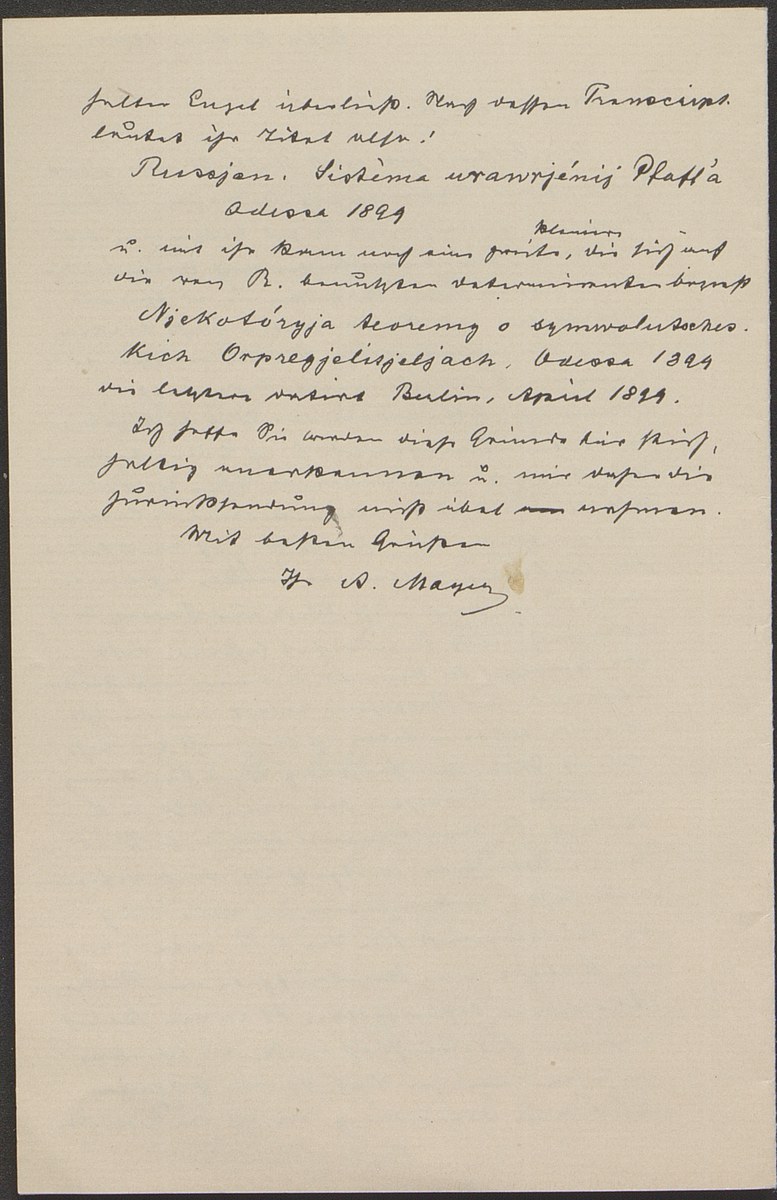 selben Engel überließ. Nach dessen Transcript.
lautet ihr Titel also:
Russjan. Sistèma urawnjénij Pfaff'a
Odessa 1899
u. mit ihr kam noch eine zweite, kleinere, die sich auf
die von R. benutzten Determinanten bezieht
Njekotóryja teoremy o symwolitsches.
kich Orpregjelitjeljach, Odessa 1899
die letztere datirt Berlin, April 1899.
Ich hoffe Sie werden diese Gründe für stich,
haltig anerkennen u. mir daher die
Zurücksendung nicht übel nehmen.
Mit besten Grüßen
Ihr A. Mayer